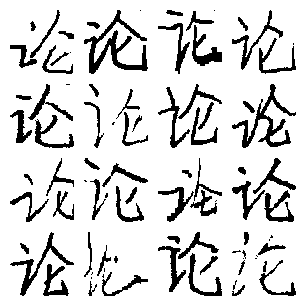 论论论论
论论论论
论论论论
论论论论